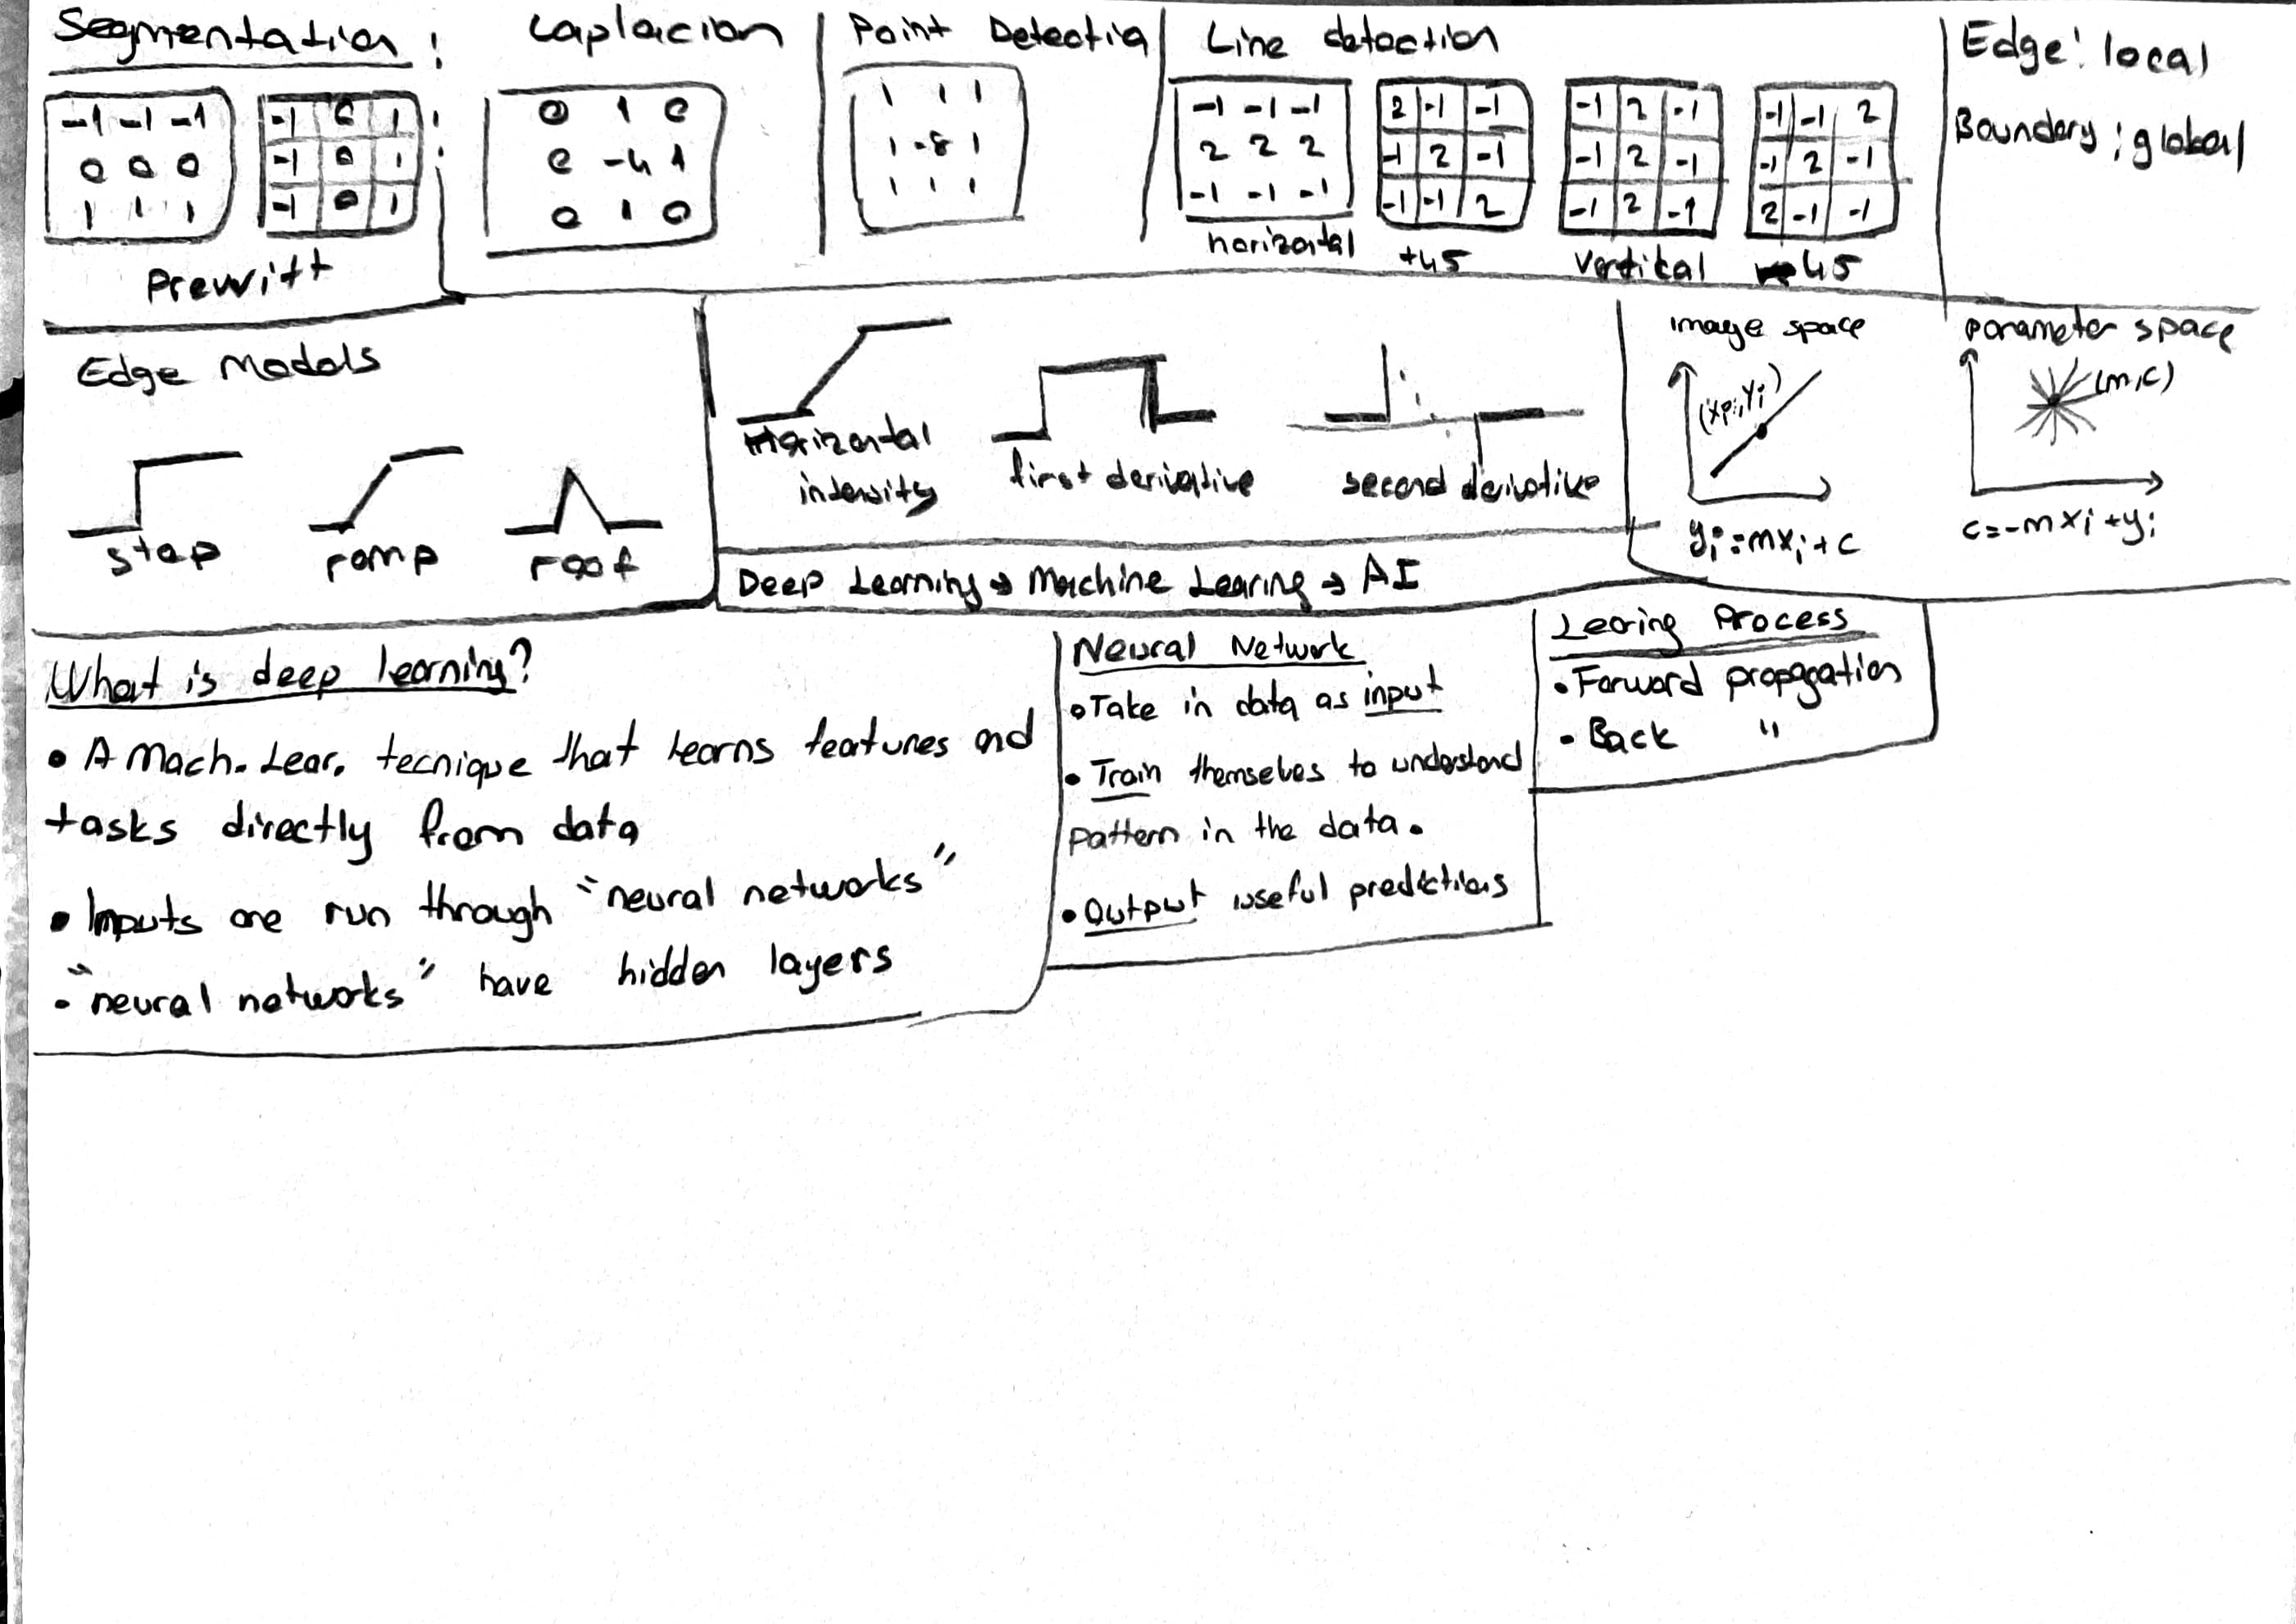 Segmentation:
-1 -1 -1
0 0 0
1 1 1
-1 0 1
-1 0 1
-1 0 1
Prewitt
Laplacian
0 1 0
0 -4 1
0 1 0
Point Detectio
1 1 1
1 -8 1
1 1 1
Line detection
-1 -1 -1
2 2 2
-1 -1 -1
horizontal
2 -1 -1
-1 2 -1
-1 -1 2
+45
-1 2 -1
-1 2 -1
-1 2 -1
Vertikal
-1 -1 2
-1 2 -1
2 -1 -1
-45
Edge: local
Boundary: global
Edge Models
step
ramp
roof
Horizontal
intensity
first derivative
second derivative
image space
(xi, yi)
yi = mxi + c
parameter space
(m, c)
c = -mxi + yi
Deep Learning → Machine Learing → AI
What is deep learning?
• A Mach. Lear. tecnique that learns features and
tasks directly from data
• Inputs are run through "neural networks"
• "neural networks" have hidden layers
Neural Network
• Take in data as input
• Train themselves to understand
pattern in the data.
• Output useful predictions
Learing Process
• Forward propagation
• Back "